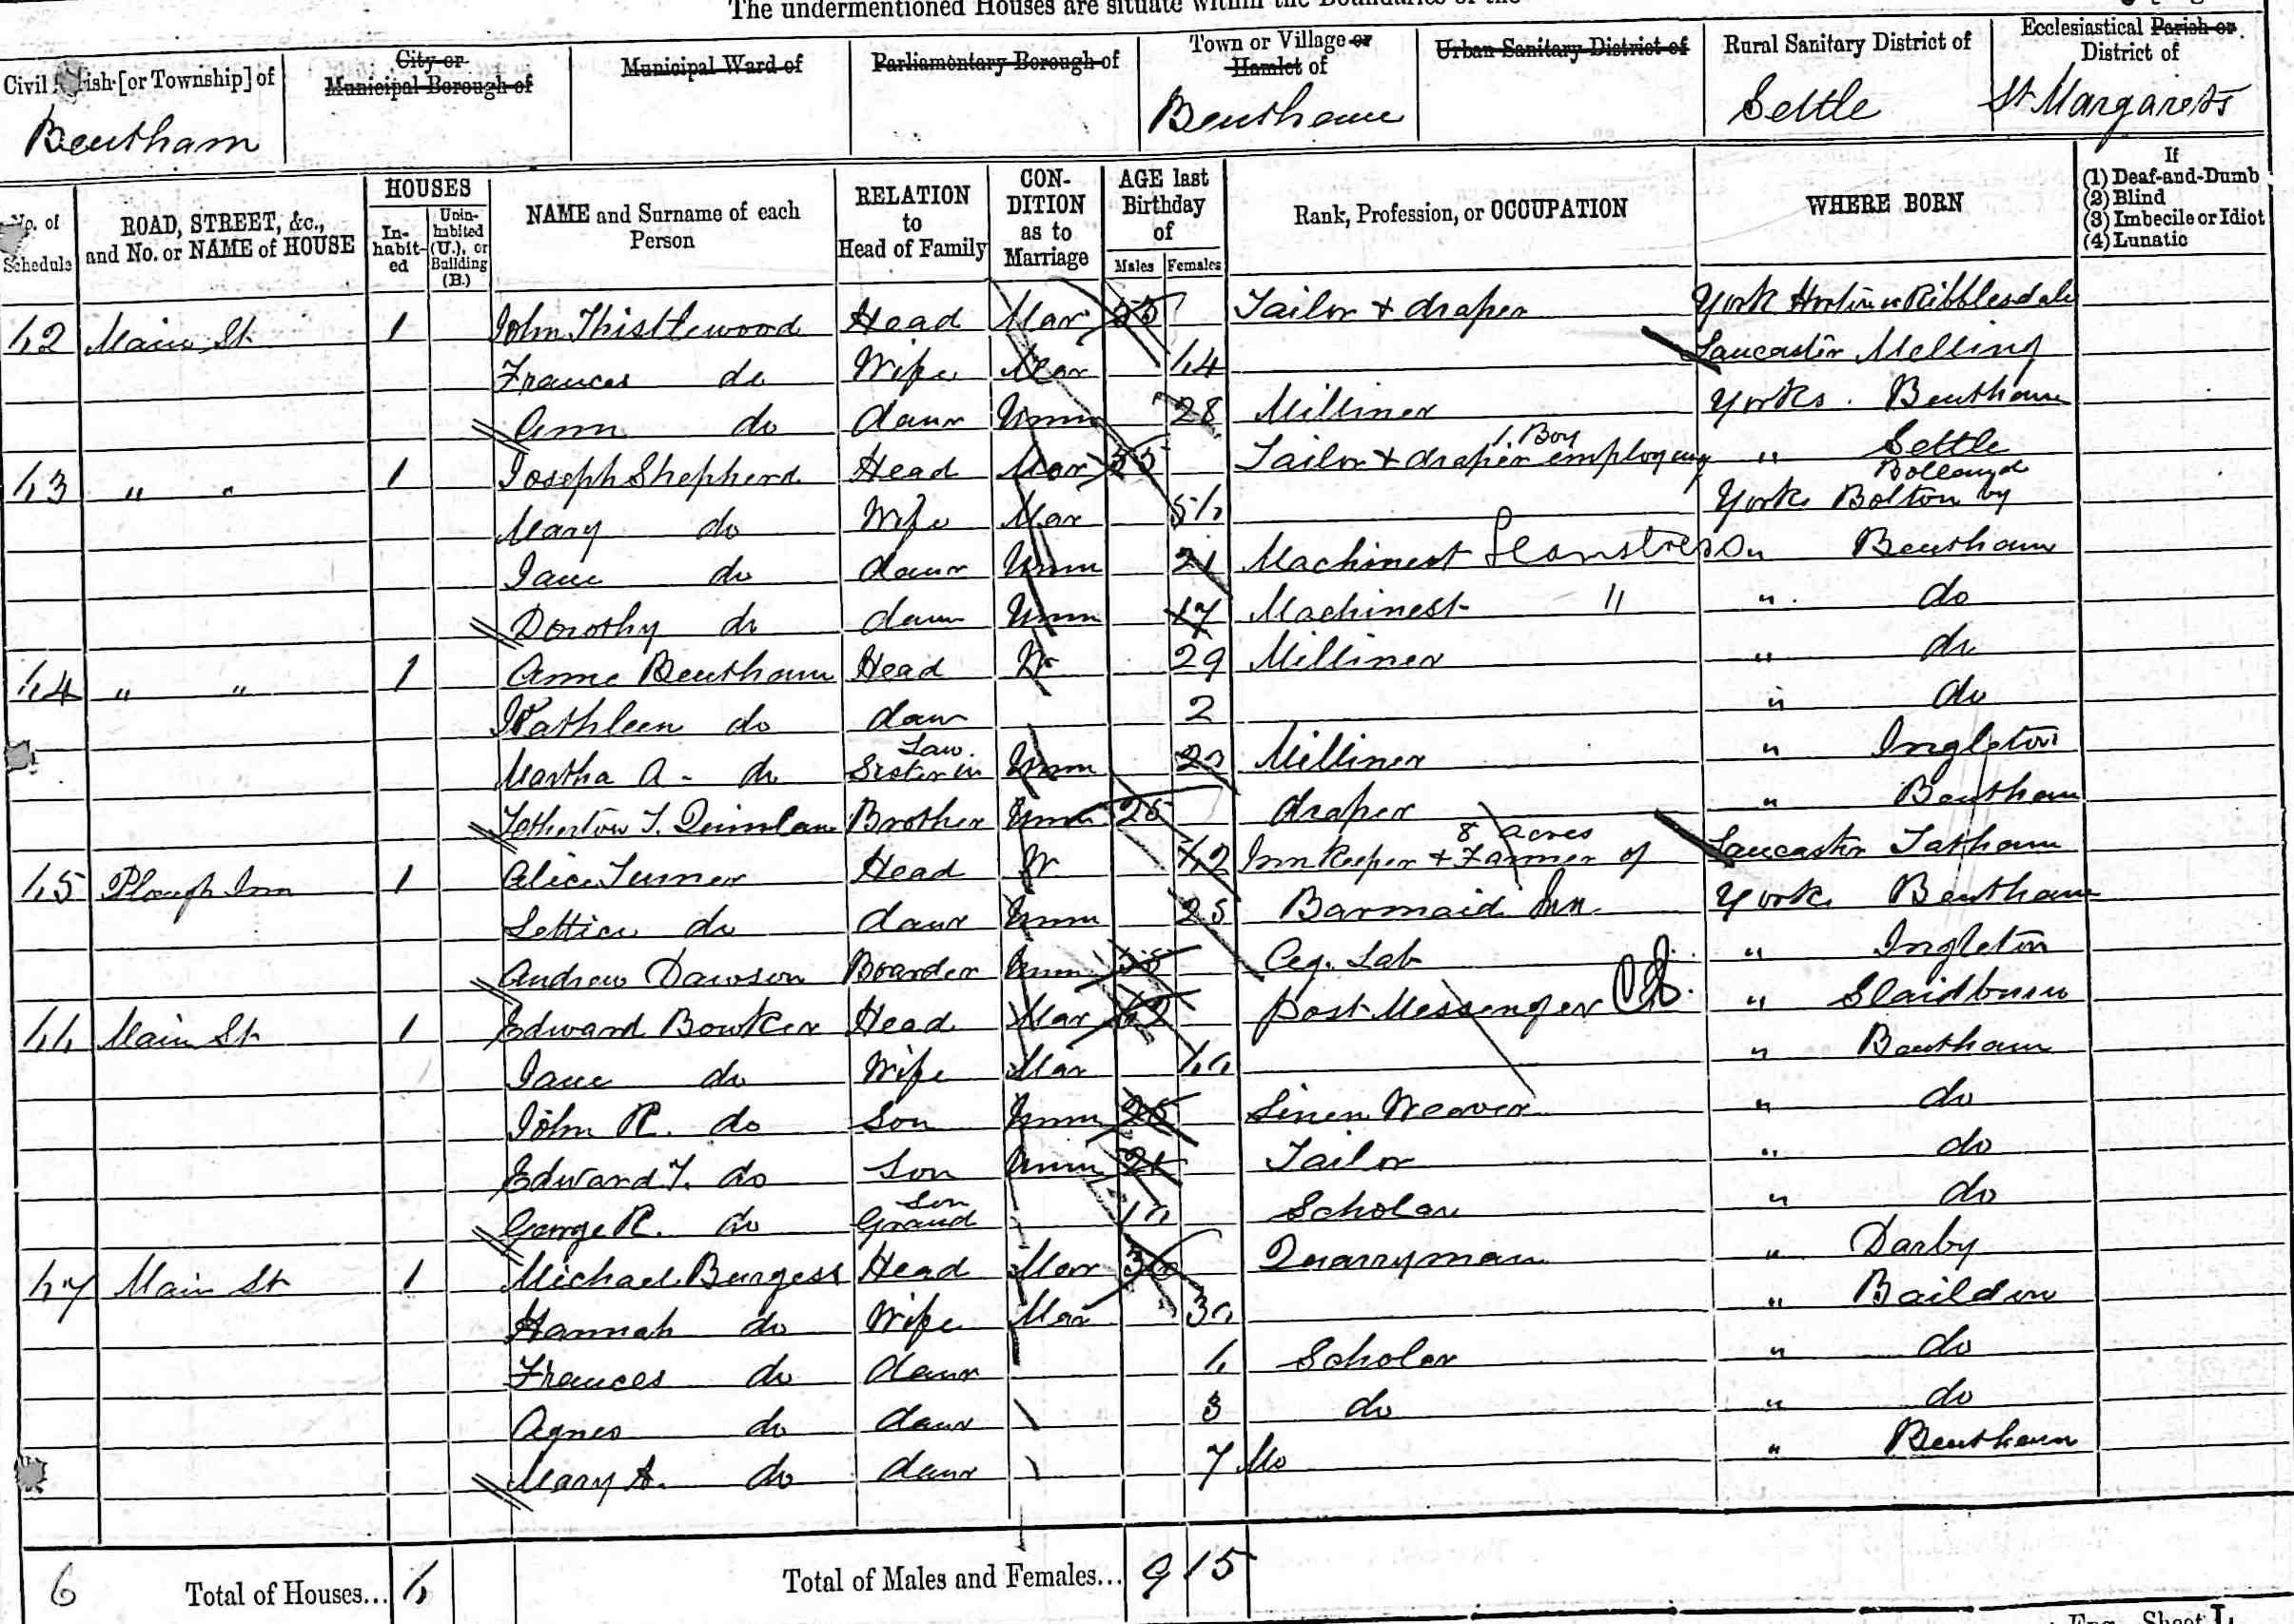 The undermentioned Houses are situate within the Boundaries of the
Civil Parish [or Township] of
City or Municipal Borough of
Municipal Ward of
Parliamentary Borough of
Town or Village or Hamlet of
Urban Sanitary District of
Rural Sanitary District of
Ecclesiastical Parish or District of
Bentham Bentham Settle St Margarets
No. of Schedule
ROAD, STREET, &c., and No. or NAME of HOUSE
HOUSES
In-habit-ed
Unin-habited (U.), or Building (B.)
NAME and Surname of each Person
RELATION to Head of Family
CON-DITION as to Marriage
AGE last Birthday of
Males Females
Rank, Profession, or OCCUPATION
WHERE BORN
If
(1) Deaf-and-Dumb
(2) Blind
(3) Imbecile or Idiot
(4) Lunatic
62 Main St 1 John Thistlewood Head Mar Tailor + draper York Horton in Ribblesdale
Frances do Wife Mar 64 Lancaster Melling
Ann do daur Unm 28 Milliner Yorks. Bentham
63 " " 1 Joseph Shepherd Head Mar 55 Tailor + draper employing 1. Boy " Settle
Mary do Wife Mar 56 York Bolton by Bolland
Jane do daur Unm 21 Machinest Seamstress " Bentham
Dorothy do daur Unm 17 Machinest " " do
64 " " 1 Anne Bentham Head W 29 Milliner " do
Kathleen do daur 2 " do
Martha A. do Sister in Law Unm Milliner " Ingleton
T. Brother Unm 25 draper " Bentham
65 Plough Inn 1 Alice Turner Head W Inn Keeper + Farmer of 8 acres Lancaster Tatham
Lettice do daur Unm 25 Barmaid Inn York Bentham
Andrew Dawson Boarder Unm Ag. Lab " Ingleton
66 Main St 1 Edward Bowker Head Mar 62 post Messenger " Slaidburn
Jane do Wife Mar 60 " Bentham
John R. do Son Unm 25 Linen Weaver " do
Edward T. do Son Unm 21 Tailor " do
George R. do Grand Son 10 Scholar " do
67 Main St 1 Michael Burgess Head Mar Quarryman " Darby
Hannah do Wife Mar 30 " Baildon
Frances do daur 6 Scholar " do
Agnes do daur 3 do " do
Mary A. do daur 7 Mo " Bentham
6 Total of Houses... 6 Total of Males and Females... 9 15
Eng.—Sheet L.